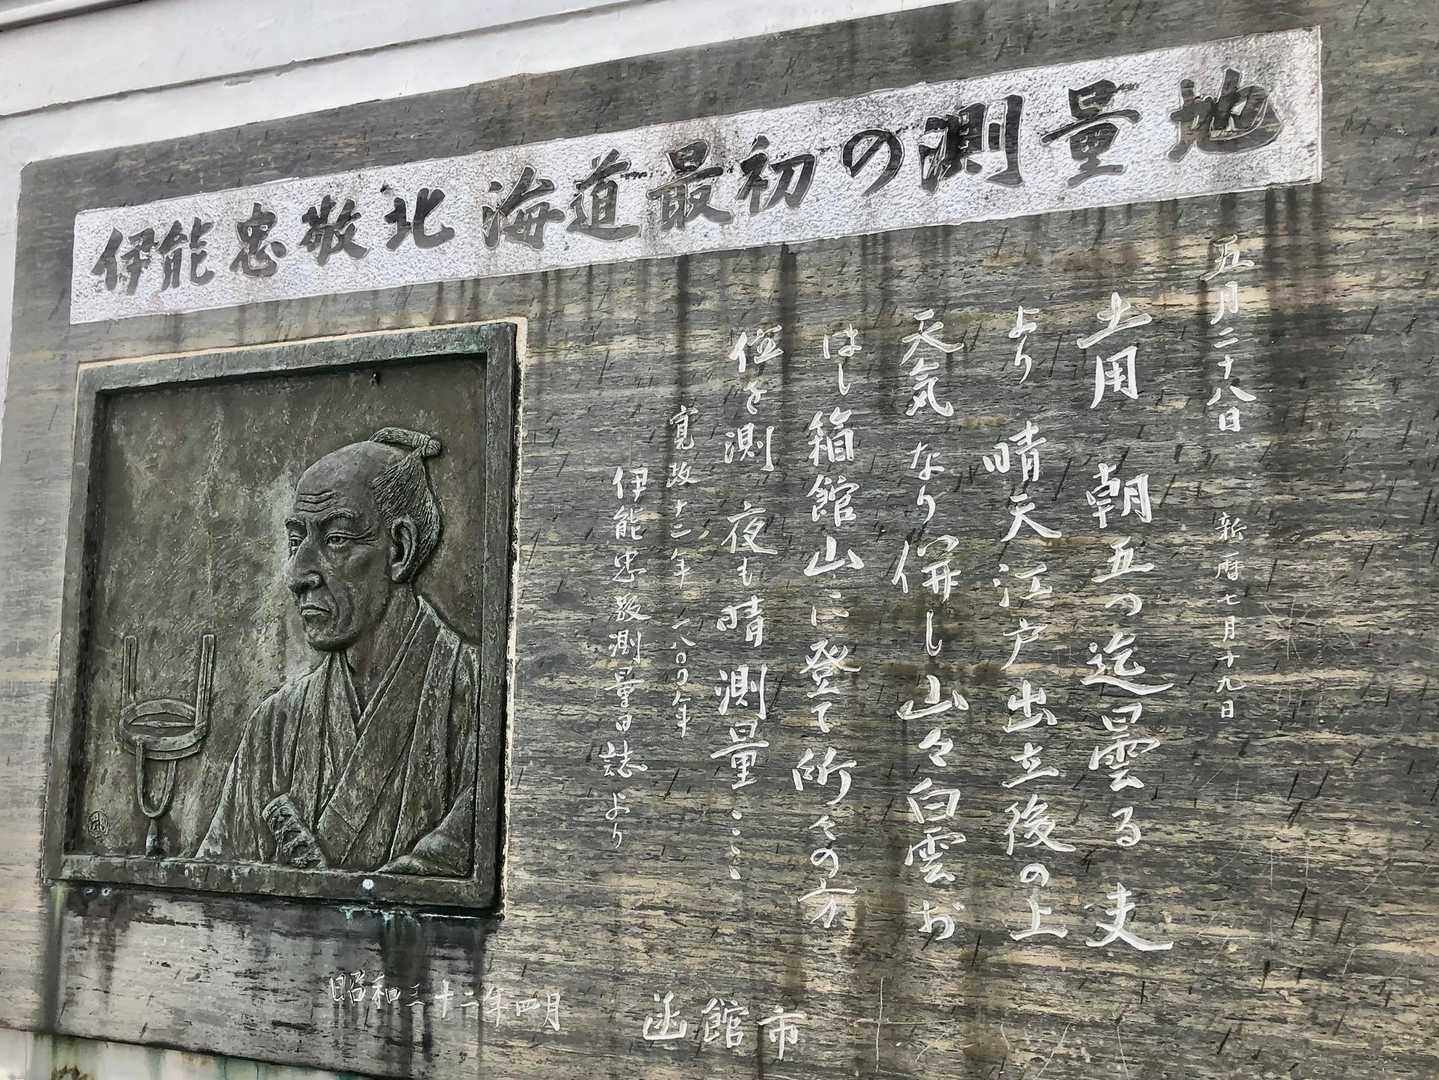 伊能忠敬北海道最初の測量地
五月二十八日 新暦七月十九日
土用 朝五つ迄曇る 夫
より 晴天 江戸出立後の上
天気なり 併し山々白雲お
ほし 箱館山に登て所々の方
位を測 夜も晴 測量……
寛政十二年 一八〇〇年
伊能忠敬測量日誌より
昭和三十二年四月 函館市